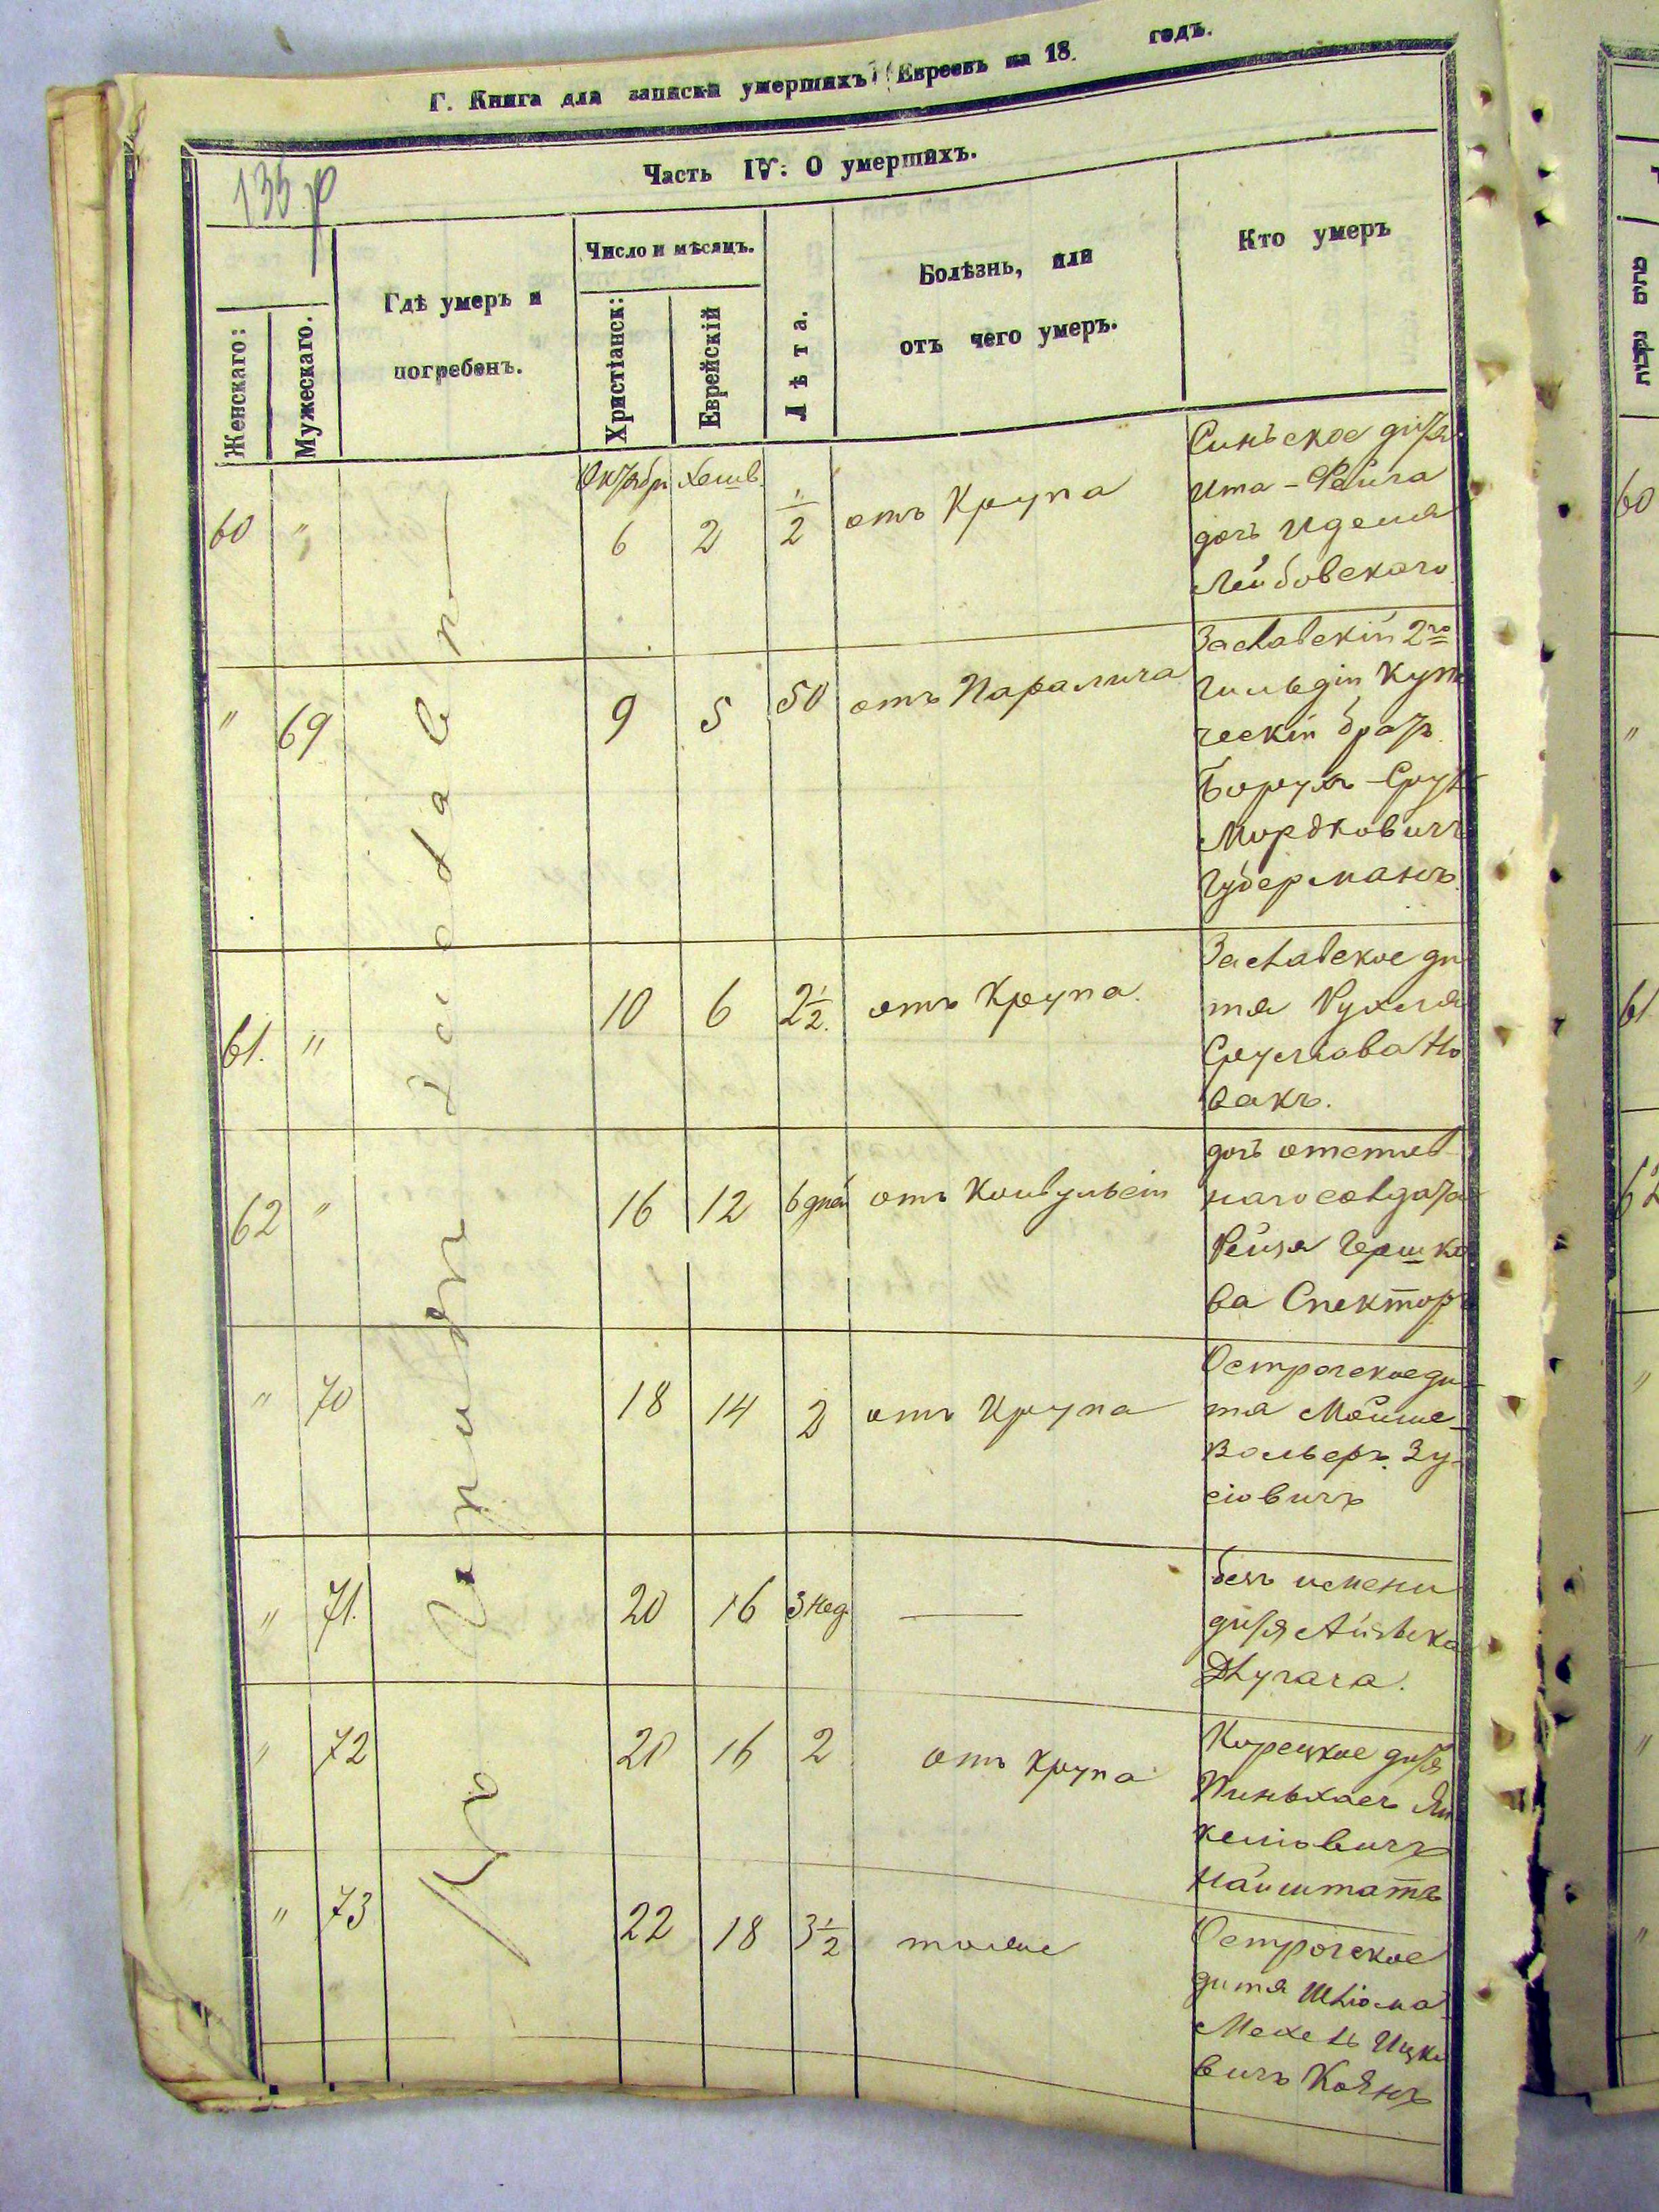 Г. Книга для записки умершихъ Евреевъ на 18 годъ.
135
Часть IV: О умершихъ.
Женскаго:
Мужескаго.
Гдѣ умеръ и
погребенъ.
Число и мѣсяцъ.
Христіанск:
Еврейскій
Лѣта.
Болѣзнь, или
отъ чего умеръ.
Кто умеръ
Въ городѣ Заславѣ
60 " Октября 6 Хешв. 2 1/2 отъ Крупа
дитя
Ита-Фейга
дочь
Лейбовскаго
" 69 9 5 50 отъ Паралича
Заславскій 2го
гильдіи Купе
ческій братъ
Борухъ-Срул
Мордковичъ
Губерманъ.
61. " 10 6 2 1/2. отъ Крупа.
Заславское ди
тя Рухля
Срулова Но
вакъ.
62 " 16 12 6 дней отъ Конвульсіи
дочь отстав
наго солдата
Рейзя Гершко
ва Спекторъ
" 70 18 14 2 отъ Крупа
Острогское ди-
тя Мойше-
Вольеръ Зу-
сіовичъ
" 71. 20 16 3 нед. —
безъ имени
дитя Айзика
Длугача.
" 72 20 16 2 отъ Крупа
Корецкое дитя
Пиньхасъ Ян
келіовичъ
Найштатъ
" 73 22 18 3 1/2 тоже
Острогское
дитя Шліома
Мехель Ицко
вичъ
60
"
61
62
"
"
"
"